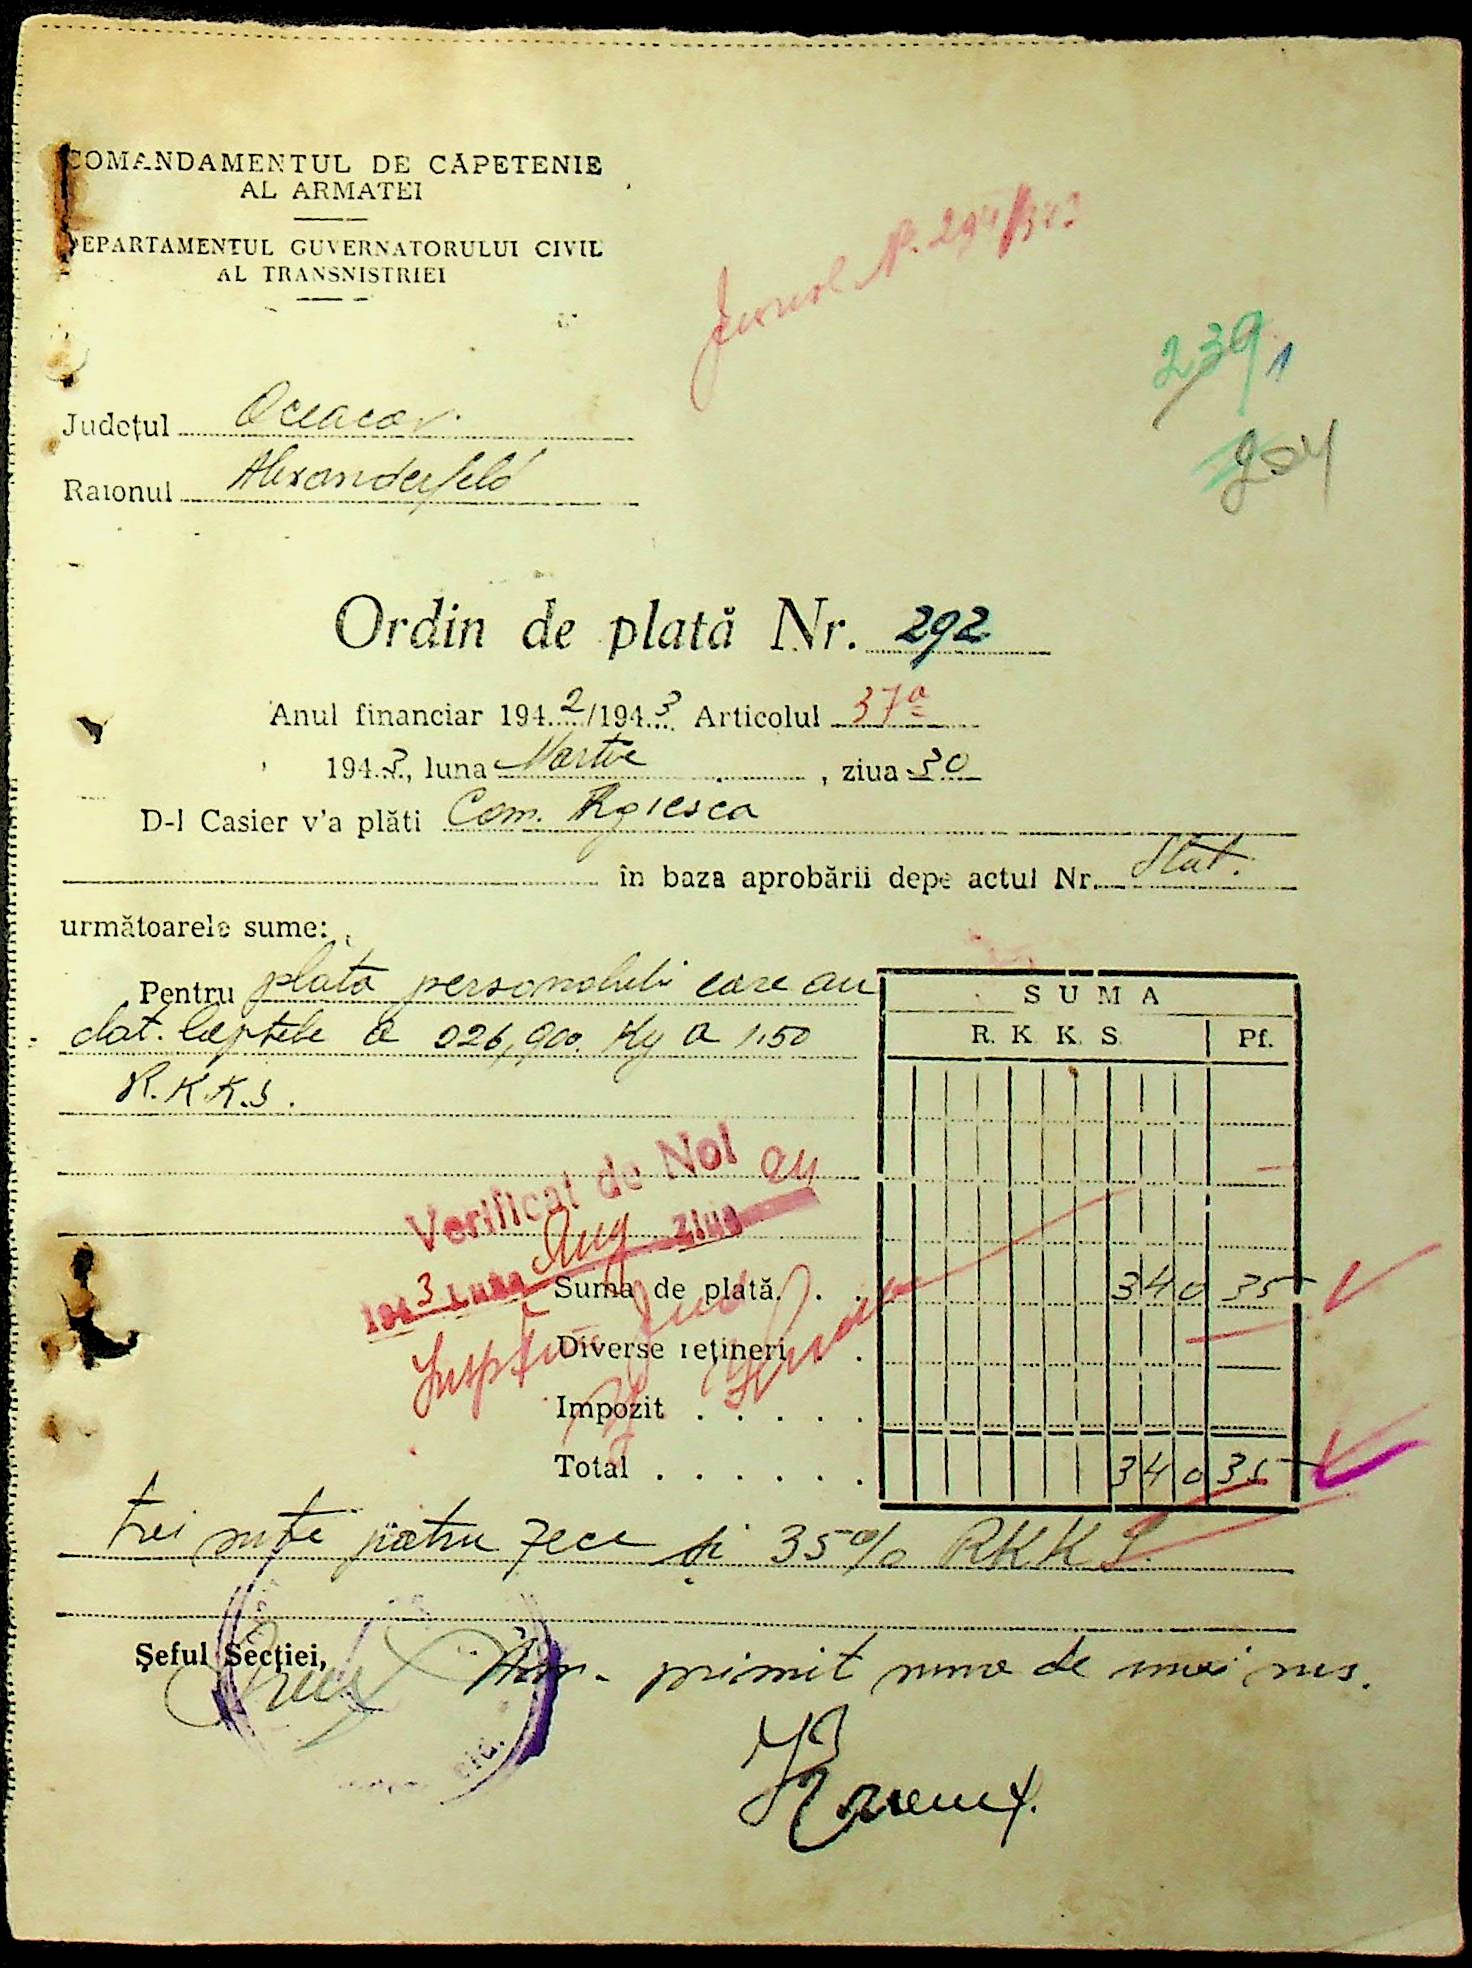 COMANDAMENTUL DE CĂPETENIE
AL ARMATEI
DEPARTAMENTUL GUVERNATORULUI CIVIL
AL TRANSNISTRIEI
Jurnal N. 294/
239
Județul Oceacov
204
Raionul Alexanderfeld
Ordin de plată Nr. 292
Anul financiar 1942/1943 Articolul 37a
1943, luna Martie, ziua 30
D-l Casier v'a plăti Com.
în baza aprobării depe actul Nr. Stat.
următoarele sume:
Pentru plata personalului care au
dat. laptele a 226,900 Kg a 1.50
R.K.K.S.
SUMA
R. K. K. S. Pf.
Verificat de Noi
1943 Luna Aug Ziua 24
Suma de plată. . . 340 35
Diverse rețineri . .
Impozit . . . . . .
Total . . . . . . . 340 35
trei sute patru zece și 35% RKKS.
Șeful Secției,
Am primit suma de mai sus.